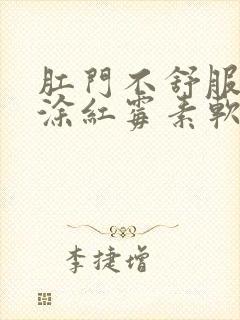 肛門不舒服
涂紅霉素軟
李捷增